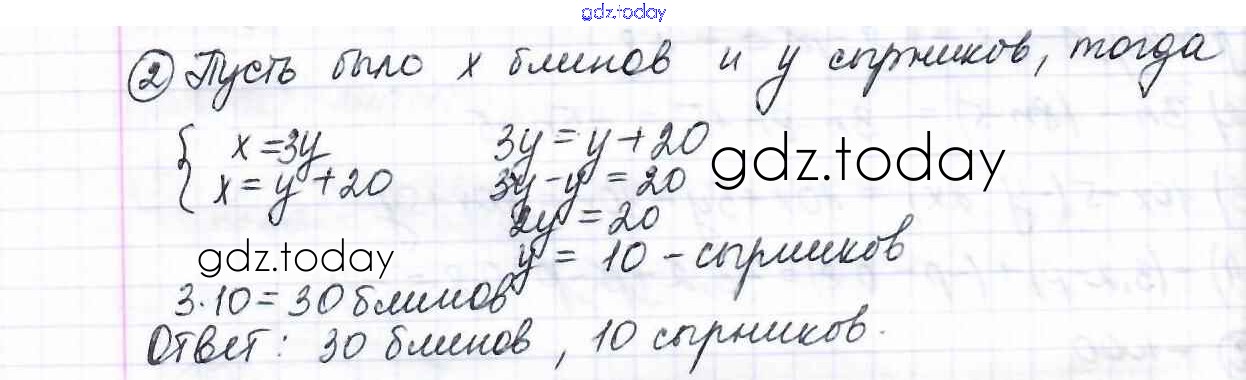 gdz.today
② Пусть было x блинов и y сырников, тогда
{ x=3y 3y=y+20
x=y+20 3y-y=20 gdz.today
2y=20
gdz.today y = 10 - сырников
3·10=30 блинов
Ответ: 30 блинов, 10 сырников.